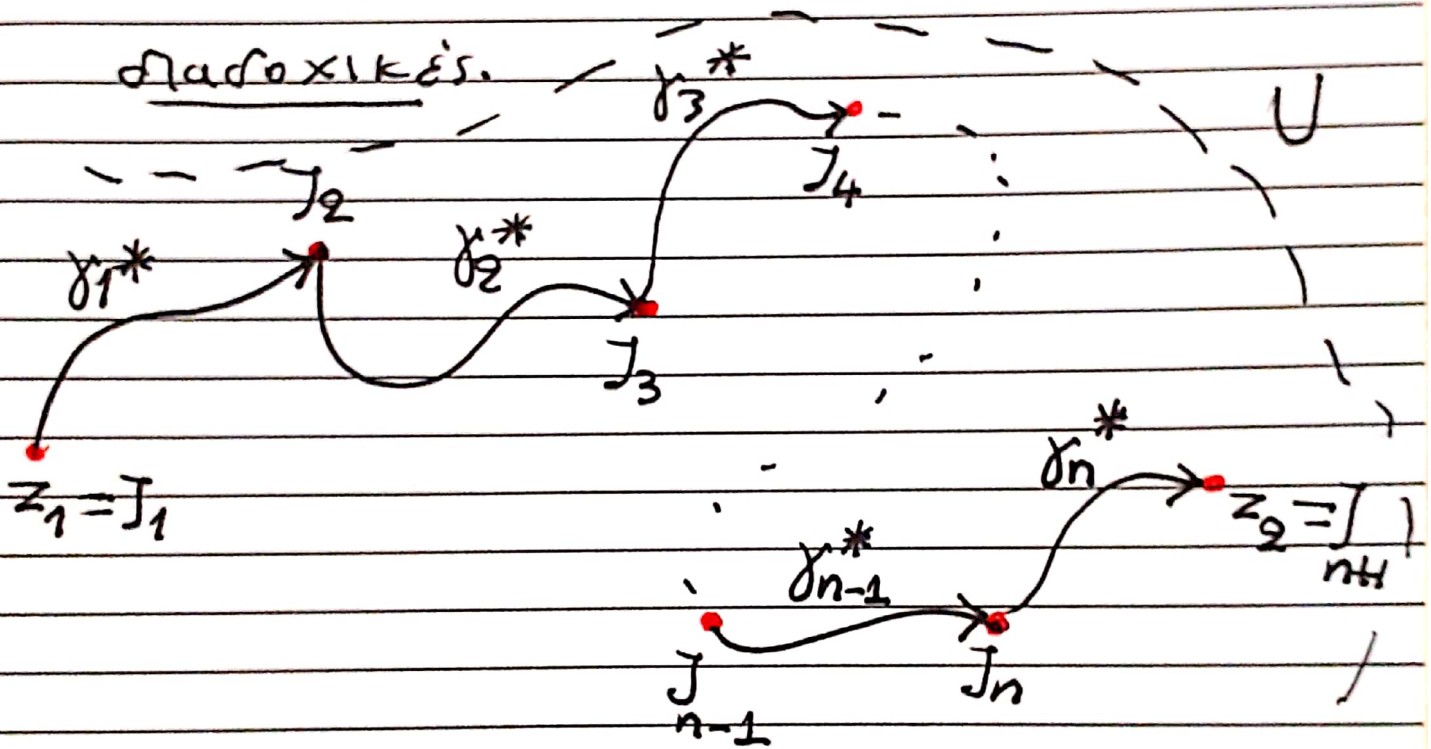 διαδοχικές.
γ₃*
U
J₄
J₂
γ₁*
γ₂*
J₃
γₙ*
z₁ = J₁
z₂ = Jₙ₊₁
γ*ₙ₋₁
Jₙ₋₁
Jₙ